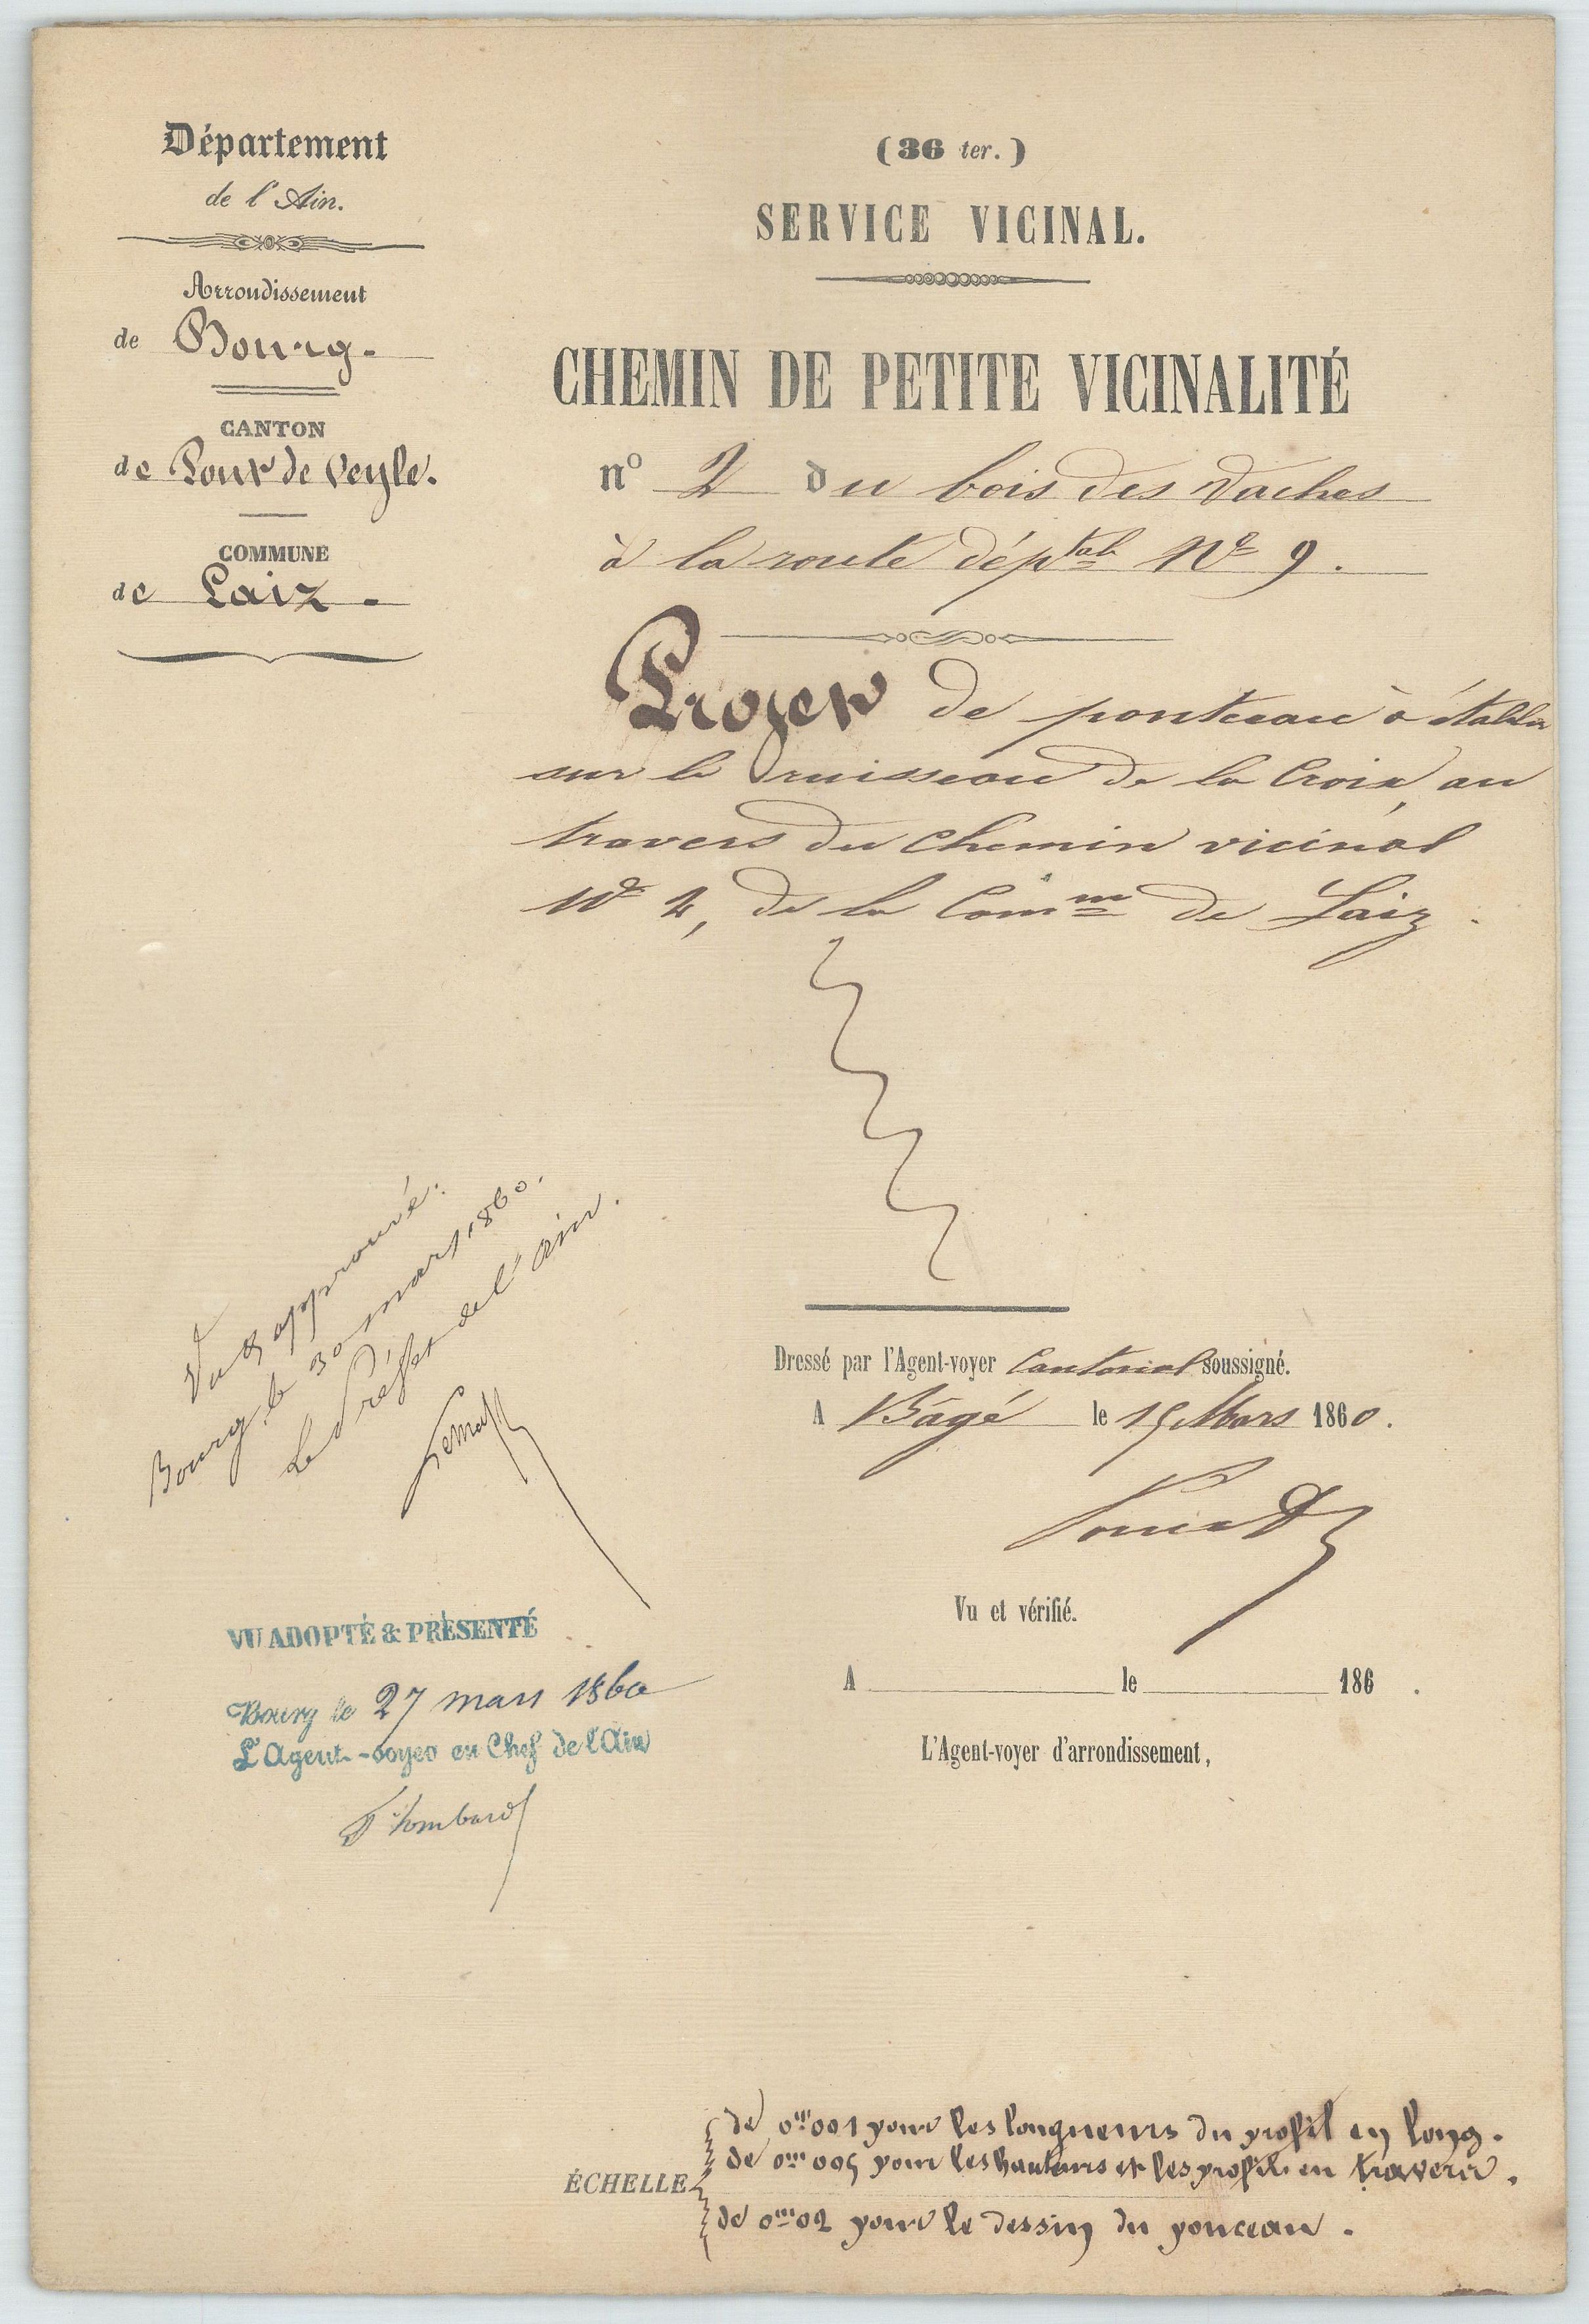 Département
de l'Ain.
Arrondissement
de Bourg.
CANTON
de Pont de Veyle.
COMMUNE
de Laiz.
(36 ter.)
SERVICE VICINAL.
CHEMIN DE PETITE VICINALITÉ
n° 2 du bois des Vaches
à la route dép^tale N° 9.
Projet de ponceau à établir
sur le ruisseau de la Croix, au
travers du chemin vicinal
N° 2, de la Com^ne de Laiz.
Vu & approuvé.
Bourg, le 30 mars 1860.
Le Préfet de l'Ain.
VU ADOPTÉ & PRÉSENTÉ
Bourg le 27 mars 1860
L'Agent-voyer en Chef de l'Ain
Dressé par l'Agent-voyer Cantonal soussigné.
A Bâgé le 15 Mars 1860.
Vu et vérifié.
A le 186 .
L'Agent-voyer d'arrondissement,
ÉCHELLE
de 0^m001 pour les longueurs du profil en long.
de 0^m005 pour les hauteurs et les profils en travers.
de 0^m02 pour le dessin du ponceau.